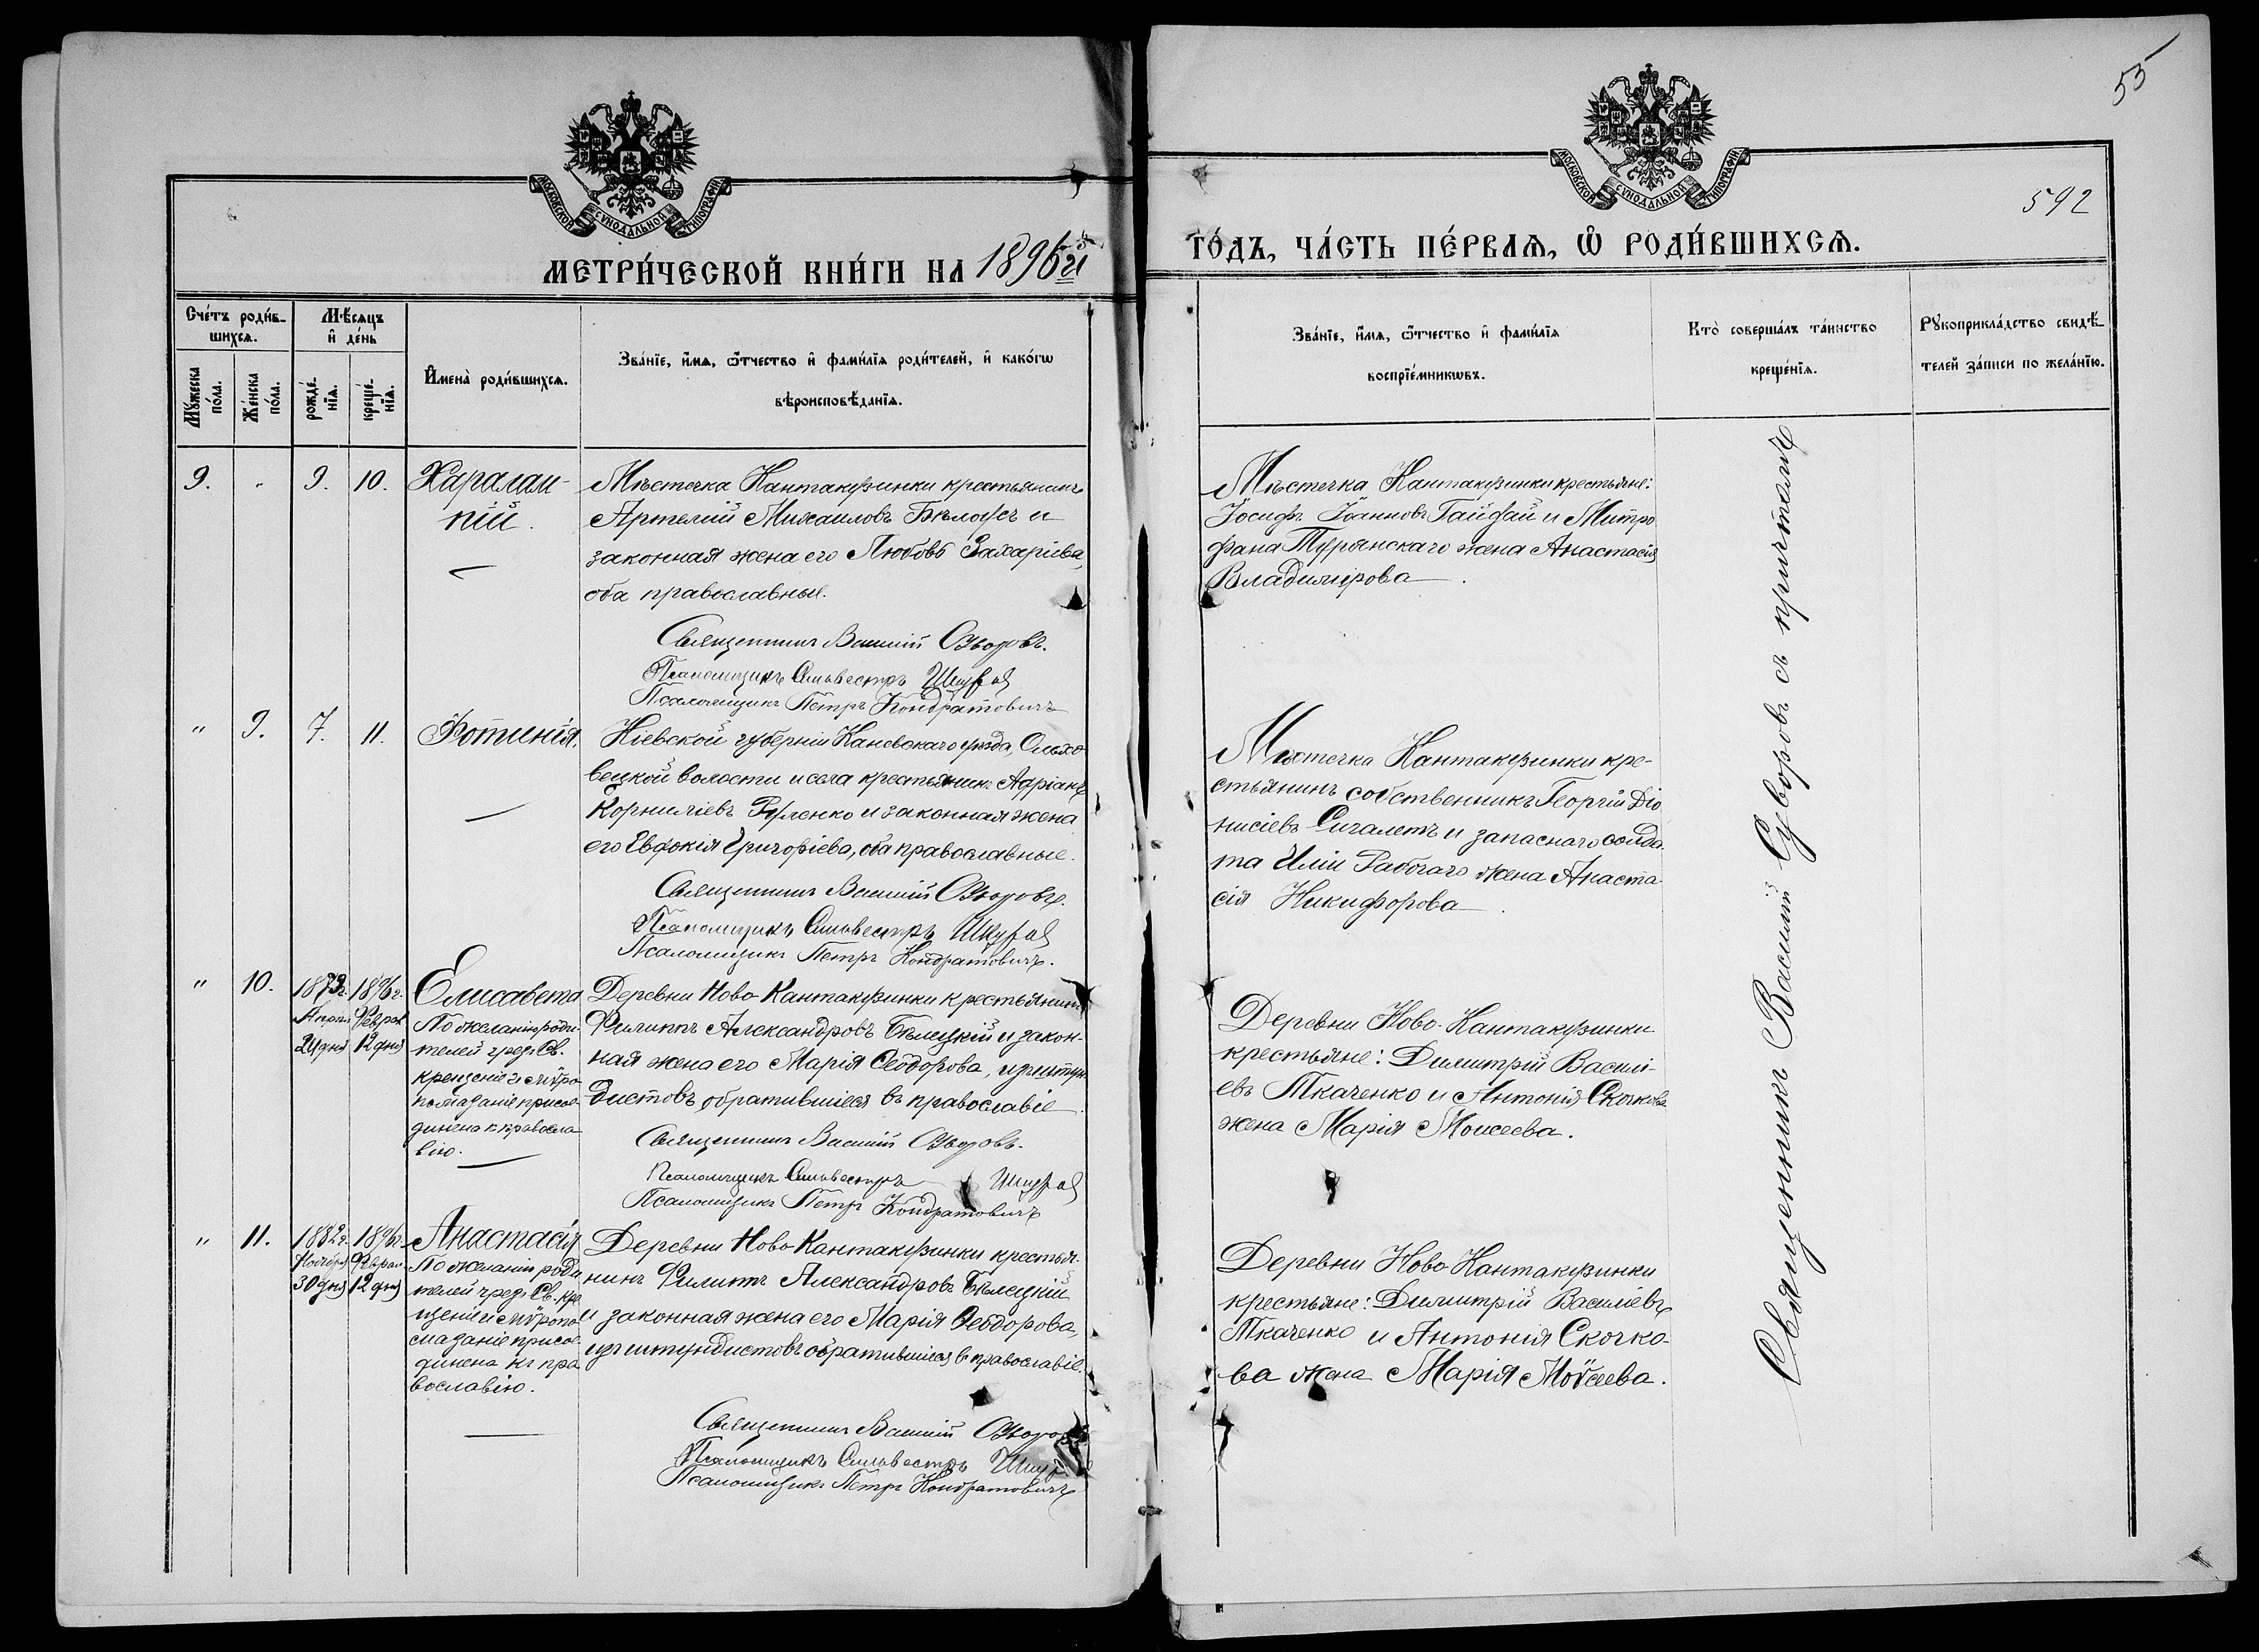 55
592
МОСКОВСКОЙ СѴНОДАЛЬНОЙ ТИПОГРАФІИ
МОСКОВСКОЙ СѴНОДАЛЬНОЙ ТИПОГРАФІИ
МЕТРИ́ЧЕСКОЙ КНИ́ГИ НА 1896й
ГО́ДЪ, ЧА́СТЬ ПЕ́РВАѦ, Ѡ РОДИ́ВШИХСѦ.
Сче́тъ роди́в-
шихсѧ.
Мꙋ́жеска
по́ла.
Же́нска
по́ла.
Мѣ́сѧцъ
и҆ де́нь
рожде́-
нїѧ.
креще́-
нїѧ.
И҆мена̀ роди́вшихсѧ.
Зва́нїе, и҆́мѧ, ѻ҆́тчество и҆ фами́лїѧ роди́телей, и҆ како́гѡ
вѣроисповѣ́данїѧ.
Зва́нїе, и҆́мѧ, ѻ҆́тчество и҆ фами́лїѧ
воспрїе́мникѡвъ.
Кто̀ соверша́лъ та́инство
креще́нїѧ.
Рꙋкоприкла́дство свидѣ́-
телей за́писи по жела́нїю.
9. " 9. 10. Харалам-
пій.
Мѣстечка Кантакузинки крестьянинъ
Артемій Михаиловъ Бѣлоусъ и
законная жена его Любовь Захаріева,
оба православные.
Священникъ Василій Суворовъ.
Псаломщикъ Сильвестръ
Псаломщикъ Петръ Кондратовичъ
Мѣстечка Кантакузинки крестьяне:
Іосифъ Іоанновъ Гайдай и Митро
фана Турянскаго жена Анастасія
Владимірова.
" 9. 7. 11. Фотинія.
Кіевской губерніи Каневскаго уѣзда, Ольхо
вецкой волости и села крестьянинъ Адріанъ
Корниліевъ Руленко и законная жена
его Евдокія Григоріева, оба православные.
Священникъ Василій Суворовъ.
Псаломщикъ Сильвестръ
Псаломщикъ Петръ Кондратовичъ.
Мѣстечка Кантакузинки кре-
стьянинъ собственникъ Георгій Діо
нисіевъ Сигалетъ и запаснаго солда
та Иліи Рабогаго жена Анаста-
сія Никифорова.
" 10. 1873г. 1896г. Елисавета
Апрѣля Феврал
24 дня 12 дня
По желанію роди-
телей чрезъ Св.
крещеніе и мѵро
помазаніе присое-
динена къ правосла
вію.
Деревни Ново Кантакузинки крестьянинъ
Филиппъ Александровъ Бѣлецкій и закон-
ная жена его Марія Ѳеодорова, изъ штун-
дистовъ обратившіеся въ православіе.
Священникъ Василій Суворовъ.
Псаломщикъ Сильвестръ
Псаломщикъ Петръ Кондратовичъ
Деревни Ново-Кантакузинки
крестьяне: Димитрій Василі-
евъ Ткаченко и Антонія Скочкова
жена Марія Моисеева.
" 11. 1882г. 1896г. Анастасія
Ноября Феврал.
30 дня 12 дня
По желанію роди
телей чрезъ Св. кре
щеніе и мѵропо-
мазаніе присое-
динена къ пра
вославію.
Деревни Ново Кантакузинки крестья-
нинъ Филиппъ Александровъ Бѣлецкій
и законная жена его Марія Ѳеодорова,
изъ штундистовъ обратившіеся въ православіе.
Священникъ Василій Суворовъ
Псаломщикъ Сильвестръ
Псаломщикъ Петръ Кондратовичъ
Деревни Ново Кантакузинки
крестьяне: Димитрій Василіевъ
Ткаченко и Антонія Скочко-
ва жена Марія Моѵсеева.
Священникъ Василій Суворовъ съ причтомъ